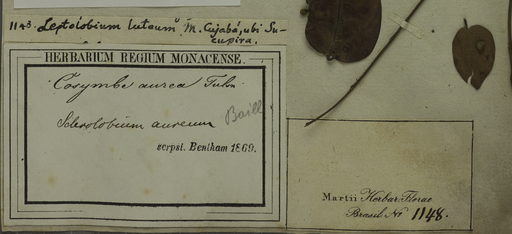 1148. Leptolobium luteum, M. Cujabá, ubi Su-
cupira.
HERBARIUM REGIUM MONACENSE.
Cosymbe aurea Tul.
Sclerolobium aureum Baill.
scrpst. Bentham 1869.
Martii Herbar. Florae
Brasil. No 1148.